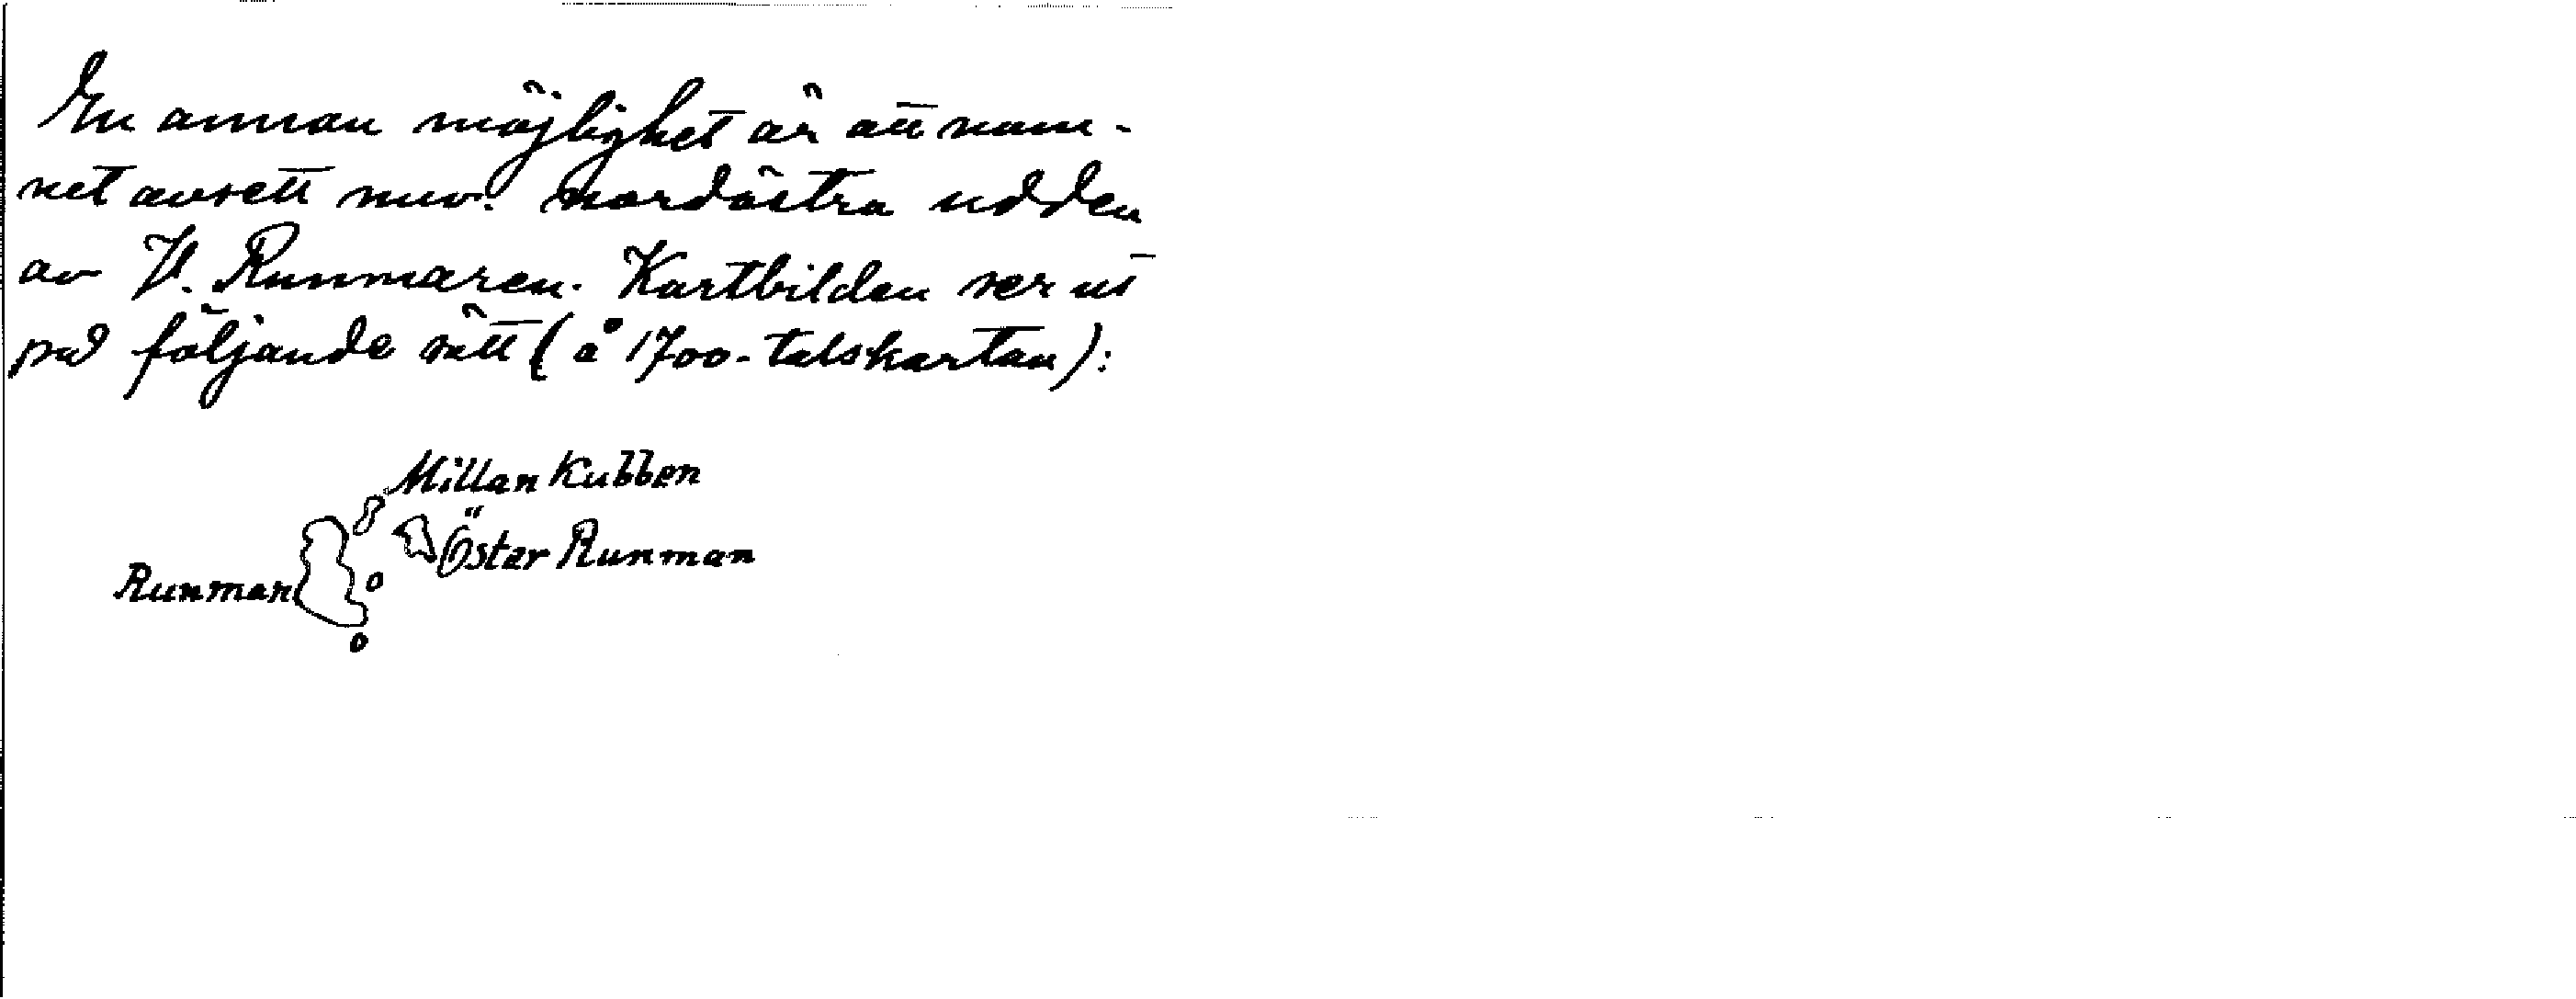 En annan möjlighet är att nam-
net avsett nuv. nordöstra udden
av V. Runmaren. Kartbilden ser ut
på följande sätt (å 1700-talskartan):
Millan Kubben
Öster Runman
Runman